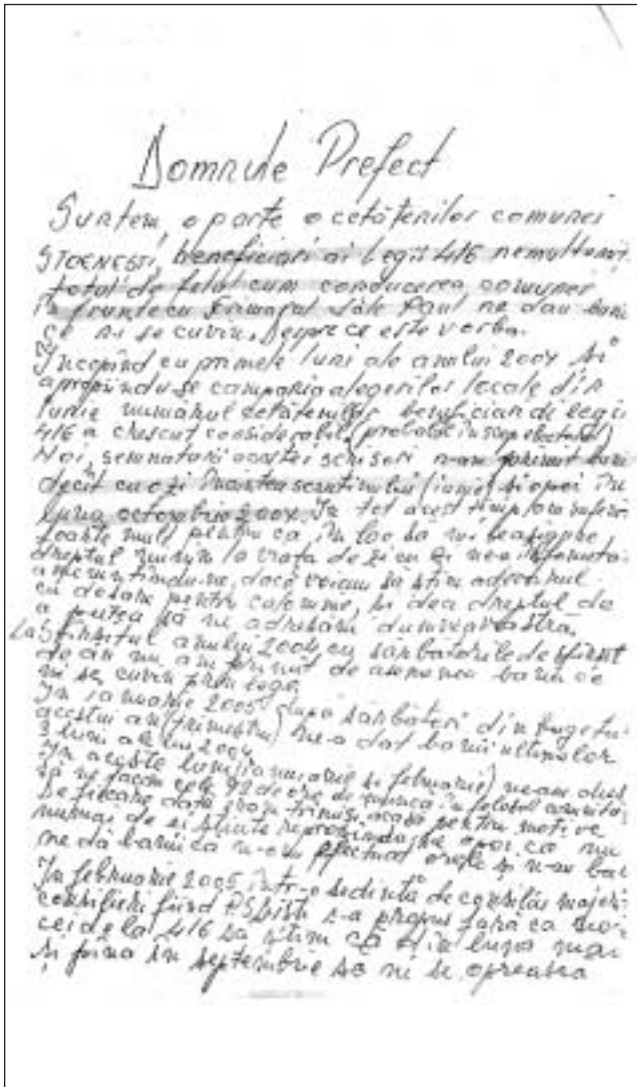 Domnule Prefect
Suntem, o parte o cetătenilor comunei
STOENESTI, beneficiari ai Legii 416 nemultumiti
total de felul cum conducerea comunei
în frunte cu Primarul Paul ne dau banii
ce ni se cuvin. Despre ce este vorba.
Incepînd cu primele luni ale anului 2004 si
apropiindu-se campania alegerilor locale din
Iunie numărul cetătenilor beneficiari de legii
416 a crescut considerabil (probabil în scop electoral)
Noi, semnatarii acestei scrisori n-am primit bani
decît cu zi înaintea scrutinului (iunie) si apoi în
luna octombrie 2004. In tot acest timp am suferit
foarte mult pentru ca, în loc să ni se asigure
dreptul la viata de zi cu zi ne-a
dacă vream sa stim adevărul
cu dosare pentru calomnie, dreptul de
a putea să ne adresăm dumneavoastră.
La Sfîrsitul anului 2004 cu sarbatorile de sfîrsit
de an nu am primit de asemenea banii ce
ni se cuvin prin lege,
In ianuarie 2005 dupa sărbători din bugetul
acestui an (trimestru) ne-a dat banii ultimelor
3 luni ale lui 2004
In aceste luni (ianuarie si februarie) ne-am dus
să ne facem cele 72 de ore de munca în folosul comunitatii
De fiecare dată eram trimisi acasă pentru motive
numai de ei stiute apoi ca nu
ne dă banii ca n-am efectuat orele si n-au bani
In februarie 2005, într-o sedinta de consiliu
consilieri fiind PSDisti s-a propus fara ca noi
cei de la 416 sa stim că din luna mai
si pîna în septembrie sa ni se opreasca